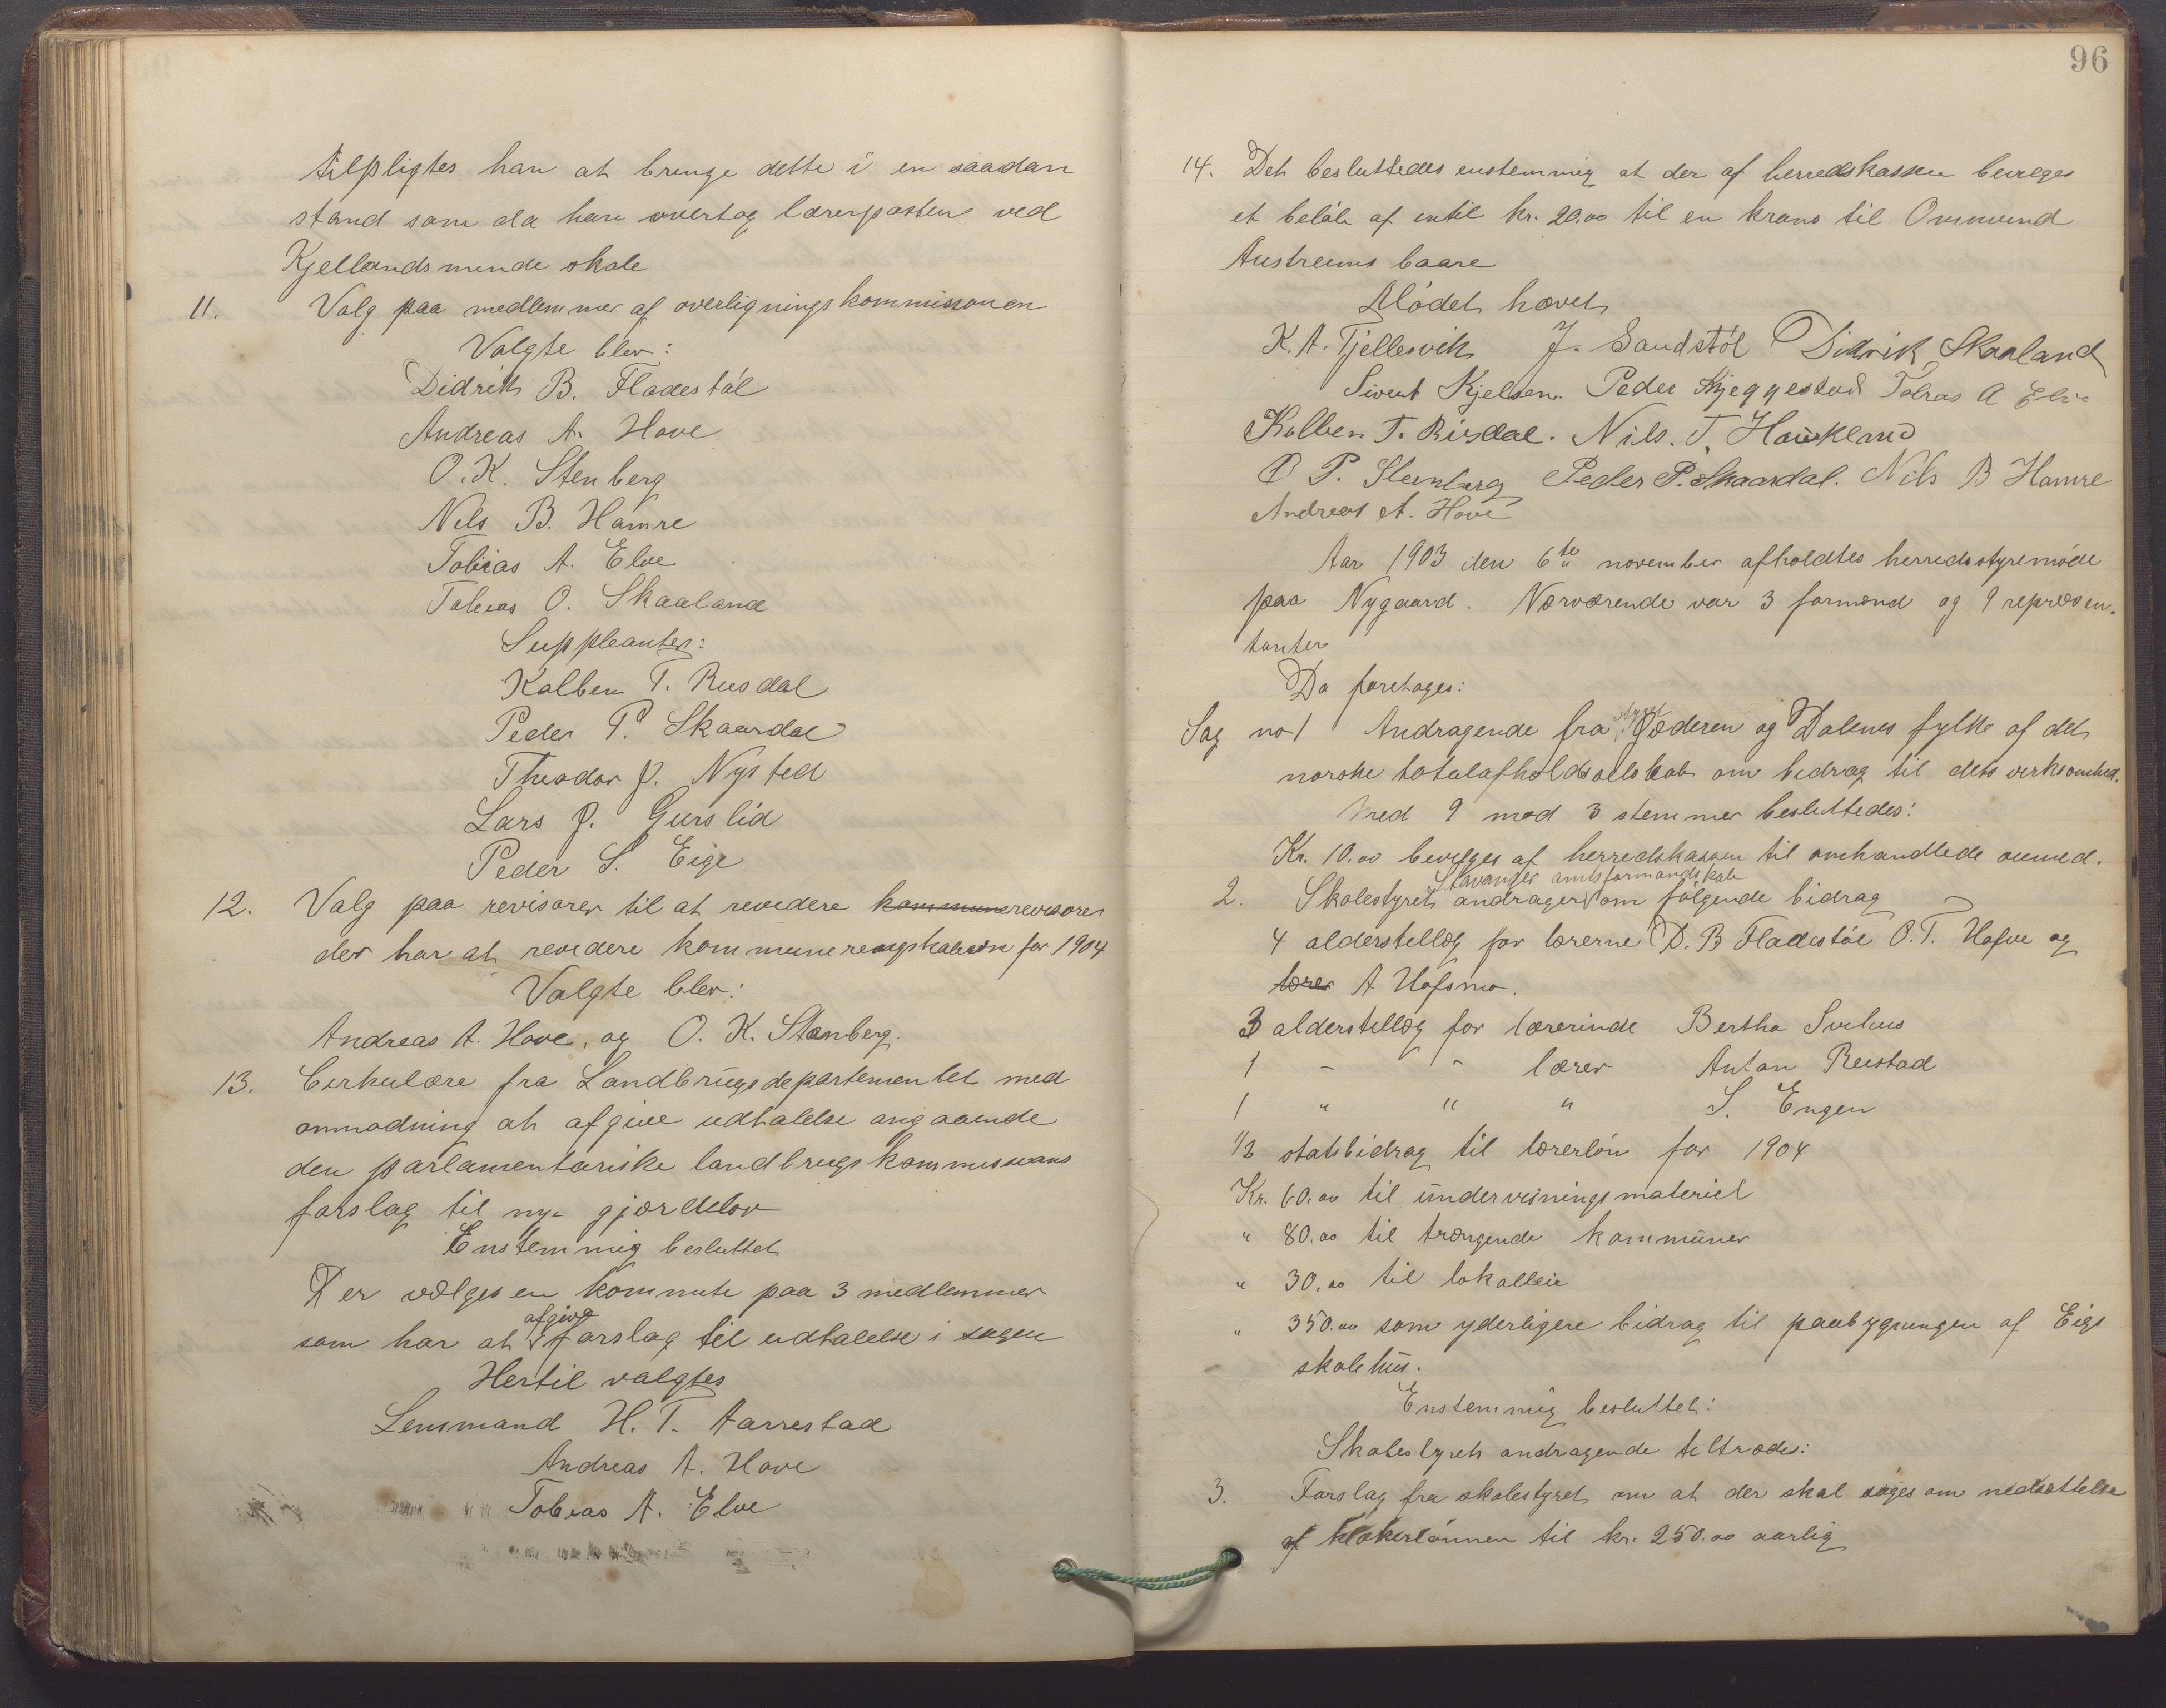 tilpligtes han at bringe dette i en saadan
stand som da han overtog lærerposten ved
Kjellandsminde skole
11. Valg paa medlemmer af overligningskommissionen
Valgte blev:
Didrik B. Fladestøl
Andreas A. Hove
O. K. Stenberg
Nils B. Hamre
Tobias A. Elve
Tobias O. Skaaland
Suppleanter:
Kolben T. Rusdal
Peder P. Skaardal
Theodor J. Nysted
Lars J. Gurslid
Peder S. Eige
12. Valg paa revisorer til at revidere kommunerevisorer
der har at revidere kommuneregnskaberne for 1904
Valgte blev:
Andreas A. Hove, og O. K. Stenberg.
13. Cirkulære fra Landbrugsdepartementet med
anmodning at afgive udtalelse angaaende
den parlamentariske landbrugskommissions
forslag til nye gjærdelov
Enstemmig besluttet
Der vælges en kommite paa 3 medlemmer
afgive
som har at forslag til udtalelse i sagen
Hertil valgtes
Lensmand H. T. Aarrestad
Andreas A. Hove
Tobias A. Elve
96
14. Det besluttedes enstemmig at der af herredskassen bevilges
et beløb af intil kr. 20.00 til en krans til Ommund
Austreims baare
Mødet hævet
K. A. Tjellesvik J. Sandstøl Didrik Skaaland
Sivert Kjelsen. Peder Skjeggestad Tobias A Elve
Kolben T. Risdal. Nils. T. Haukland
O P. Stenberg Peder P. Skaardal. Nils B Hamre
Andreas A. Hove
Aar 1903 den 6te november afholdtes herredsstyremøde
paa Nygaard. Nærværende var 3 formænd og 9 repræsen-
tanter
Da foretages:
styret
Sag no 1 Andragende fra Jæderen og Dalenes fylke af det
norske totalafholdsselskab om bidrag til dets virksomhed.
Med 9 mod 3 stemmer besluttedes:
Kr. 10.00 bevilges af herredskassen til omhandlede øiemed.
Stavanger amtsformandskab
2. Skolestyret andrager om følgende bidrag
4 alderstillæg for lærerne D. B Fladestøl O. T. Hafve og
lærer A Hofsmo.
3 alderstillæg for lærerinde Bertha Svihus
1 - - lærer Anton Rustad
1 " " " S. Engen
1/3 statsbidrag til lærerløn for 1904
Kr. 60.00 til undervisningsmateriel
" 80.00 til trængende kommuner
" 30.00 til lokalleie
" 350.00 som yderligere bidrag til paabygningen af Eige
skolehus.
Enstemmig besluttet:
Skolestyrets andragende tiltrædes:
3. Forslag fra skolestyret om at der skal søges om nedsættelse
af klokerlønnen til kr. 250.00 aarlig